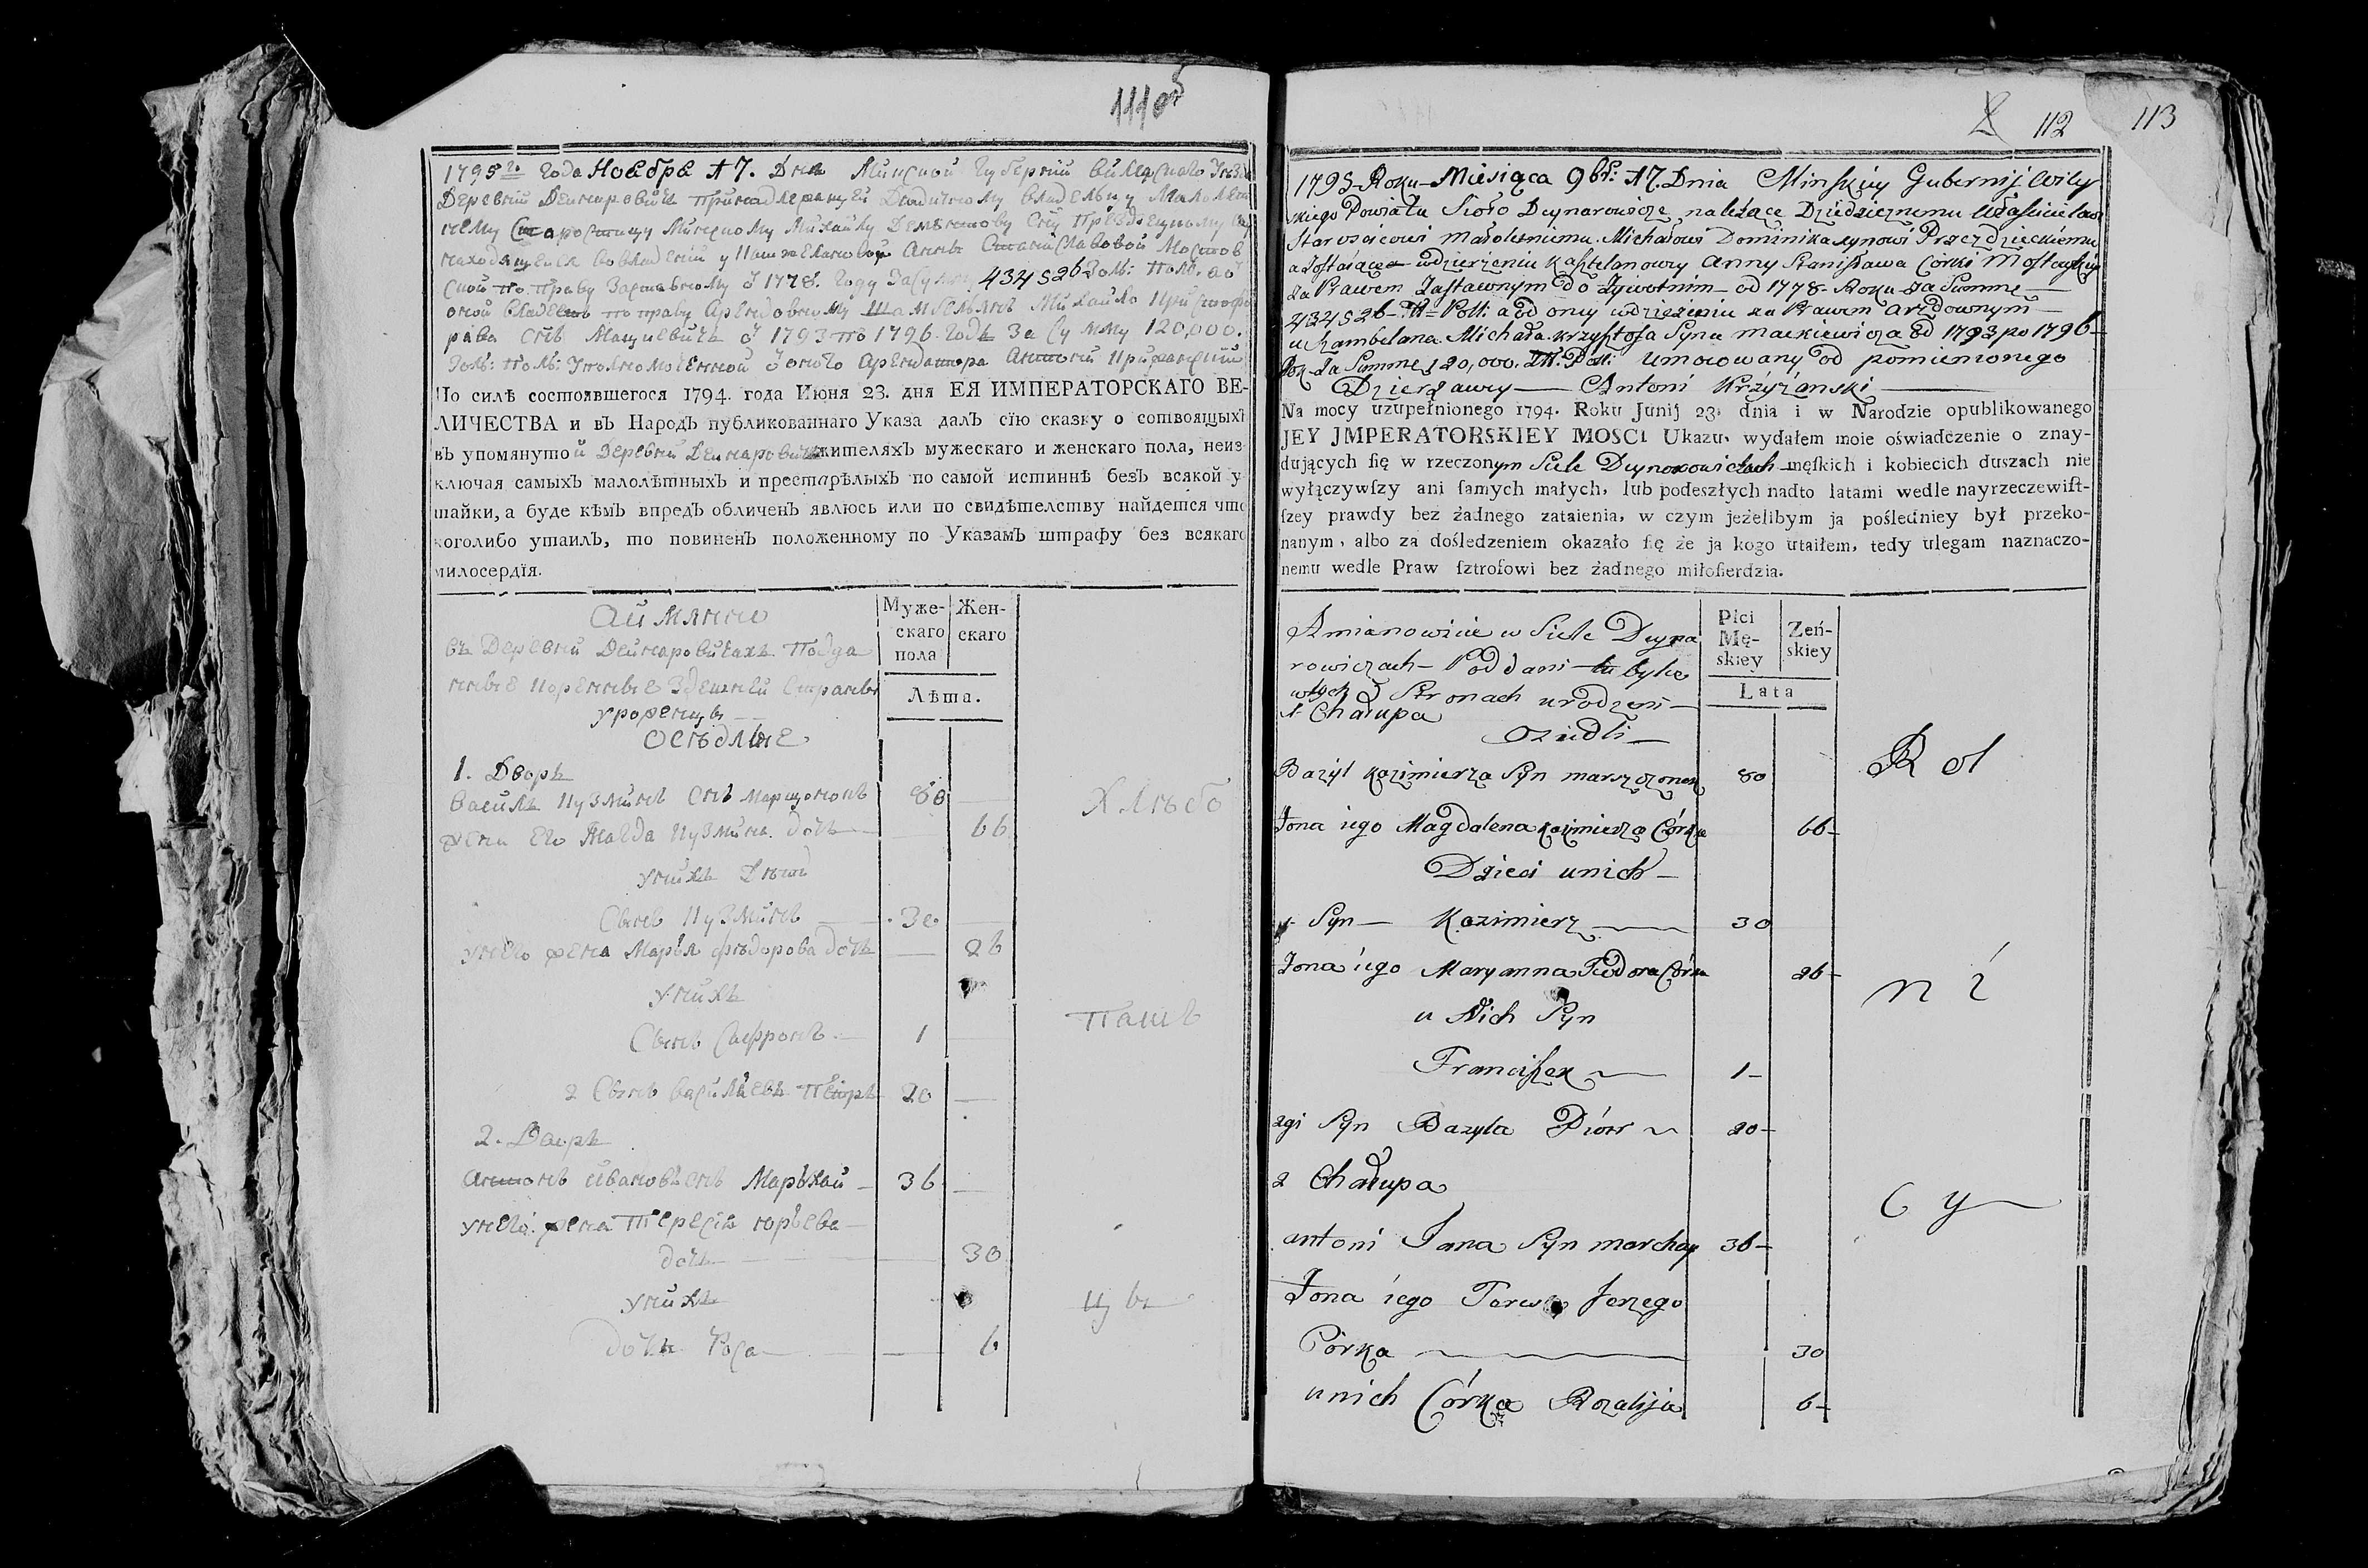 111 об
1795го года Ноебре 17. Дня Минской Губернїи вилейского
Деревнїи Дейнаровичи принадлежащей Дѣдичному владельцу Малолет
нему Старостицу Минскому Михайлу
находящейся во владенїи у Анны Станиславовой
ской по праву Заставному 1778. Году За Сумму 434526 Зол: Пол.
оной владеетъ по праву Арендовному Шамбелянъ Михайло
1793 по 1796. Годъ За Сумму 120,000.
Зол: пол: Уполномоченной оного Арендатора Антоний
По силѣ состоявшегося 1794. года Июня 23. дня ЕЯ ИМПЕРАТОРСКАГО ВЕ-
ЛИЧЕСТВА и въ Народъ публикованнаго Указа далъ сїю сказку о сотвоящыхъ
въ упомянутой Деревни Дейнаровичи жителяхъ мужескаго и женскаго пола, неиз-
ключая самыхъ малолѣтныхъ и престарѣлыхъ по самой истиннѣ безъ всякой у-
тайки, а буде кѣмъ впредъ обличенъ явлюсь или по свидѣтелству найдется что
коголибо утаилъ, то повиненъ положенному по Указамъ штрафу без всякаго
милосердїя.
Муже-скаго пола
Жен-скаго
Лѣта.
Аймянно
въ Деревни Дейнаровичахъ Подда
нные Коренные Здешней Страны
уроженцы
осѣдлые
1. Дворъ
Василь Кузминъ Снъ Марщонокъ 80
жена Его Магда Кузмина дочь 66
Хлѣбо
унихъ Дѣти
Сынъ Кузминъ 30
унего жена Марья Фѣдорова дочь 26
унихъ
Паш
Сынъ 1
2 Сынъ Васильевъ Петръ 20
2. Дворъ
Антонъ Ивановъ Снъ Мархай 36
унего жена Тересія юрьева
дочь 30
унихъ
цы
дочь Роса 6
112 113
1795 Roku Miesiąca 9br: 17. Dnia Minskiey Gubernij Wiley
skiego Powiatu Sioło Deynarowicze należące Dziedzicznemu Właścicielowi
Starościcowi małoletniemu Michałowi Dominika synowi Przezdzieckiemu
a Zostaiące w dzierżeniu Kasztelanowey Anny Stanisława Córki Mostowskiey
za Prawem Zastawnym Dożywotnim od 1778 Roku za Summę
434526 Poll: a od oney w dzierżeniu za Prawem arędownym
u Szambelana Michała Krzysztofa Syna Mackiewicza od 1793 po 1796
Rok za Summę 120,000. Poll: Umocowany od pomienionego
Dzierżawcy Antoni Krzyżanski
Na mocy uzupełnionego 1794. Roku Junij 23. dnia i w Narodzie opublikowanego
JEY JMPERATORSKIEY MOSCI Ukazu, wydałem moie oświadczenie o znay-
dujących się w rzeczonym Siele Deynarowiczach męſkich i kobiecich duszach nie
wyłączywſzy ani ſamych małych, lub podeszłych nadto latami wedle nayrzeczewiſt-
ſzey prawdy bez żadnego zataienia, w czym jeżelibym ja poślednieу był przeko-
nanym, albo za dośledzeniem okazało się że ja kogo utaiłem, tedy ulegam naznaczo-
nemu wedle Praw ſztrofowi bez żadnego miłoſierdzia.
Płci Mę-skiey
Zeń-skiey
Lata
Amianowicie w Siele Deyna
rowiczach Poddani tu byłce
w tych Stronach urodzeni
1 Chałupa
Osiedli
Bazyl Kazimierza Syn marszczonek 80
Rol
Żona iego Magdalena Kazimierza Córka 66
Dzieci unich
1 Syn Kazimierz 30
Żona iego Maryanna Teodora Córka 26
ni
u Nich Syn
Franciszek 1
2gi Syn Bazyla Piotr 20
2 Chałupa
cy
antoni Jana Syn marchay 36
Żona iego Teresa Jerzego
Córka 30
unich Córka Rozalija 6